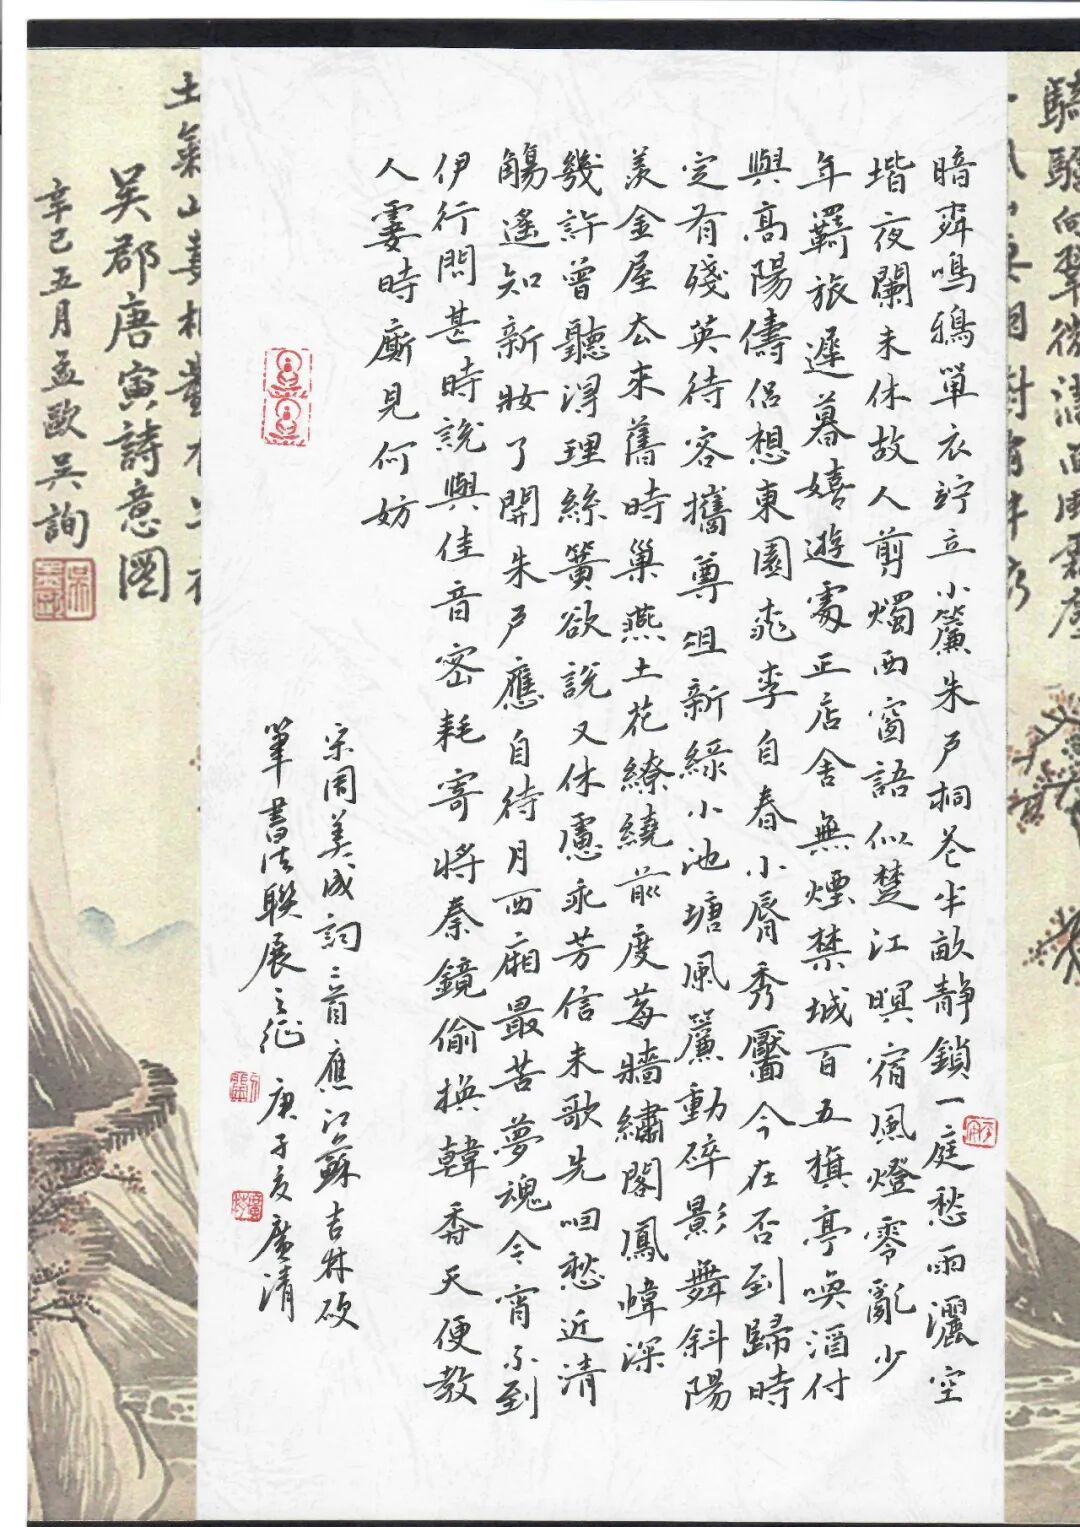 暗鳴鴉單衣竚立小簾朱戶桐花半畝靜鎖一庭愁雨灑空
堦夜闌未休故人剪燭西窗語似楚江暝宿風燈零亂少
年羈旅遲暮嬉遊處正店舍無煙禁城百五旗亭喚酒付
與高陽儔侶想東園桃李自春小脣秀靨今在否到歸時
定有殘英待容攜尊俎新綠小池塘風簾動碎影舞斜陽
羨金屋去來舊時巢燕土花繚繞前度莓牆繡閣鳳幃深
幾許曾聽得理絲簧欲說又休慮乖芳信未歌先咽愁近清
觴遙知新妝了開朱戶應自待月西廂最苦夢魂今宵不到
伊行問甚時說與佳音密耗寄將秦鏡偷換韓香天便教
人霎時廝見何妨
宋周美成詞二首應江蘇吉林硬
筆書法聯展之徵 庚子亥廣清
吳郡唐寅詩意圖
辛巳五月孟歐吳詢